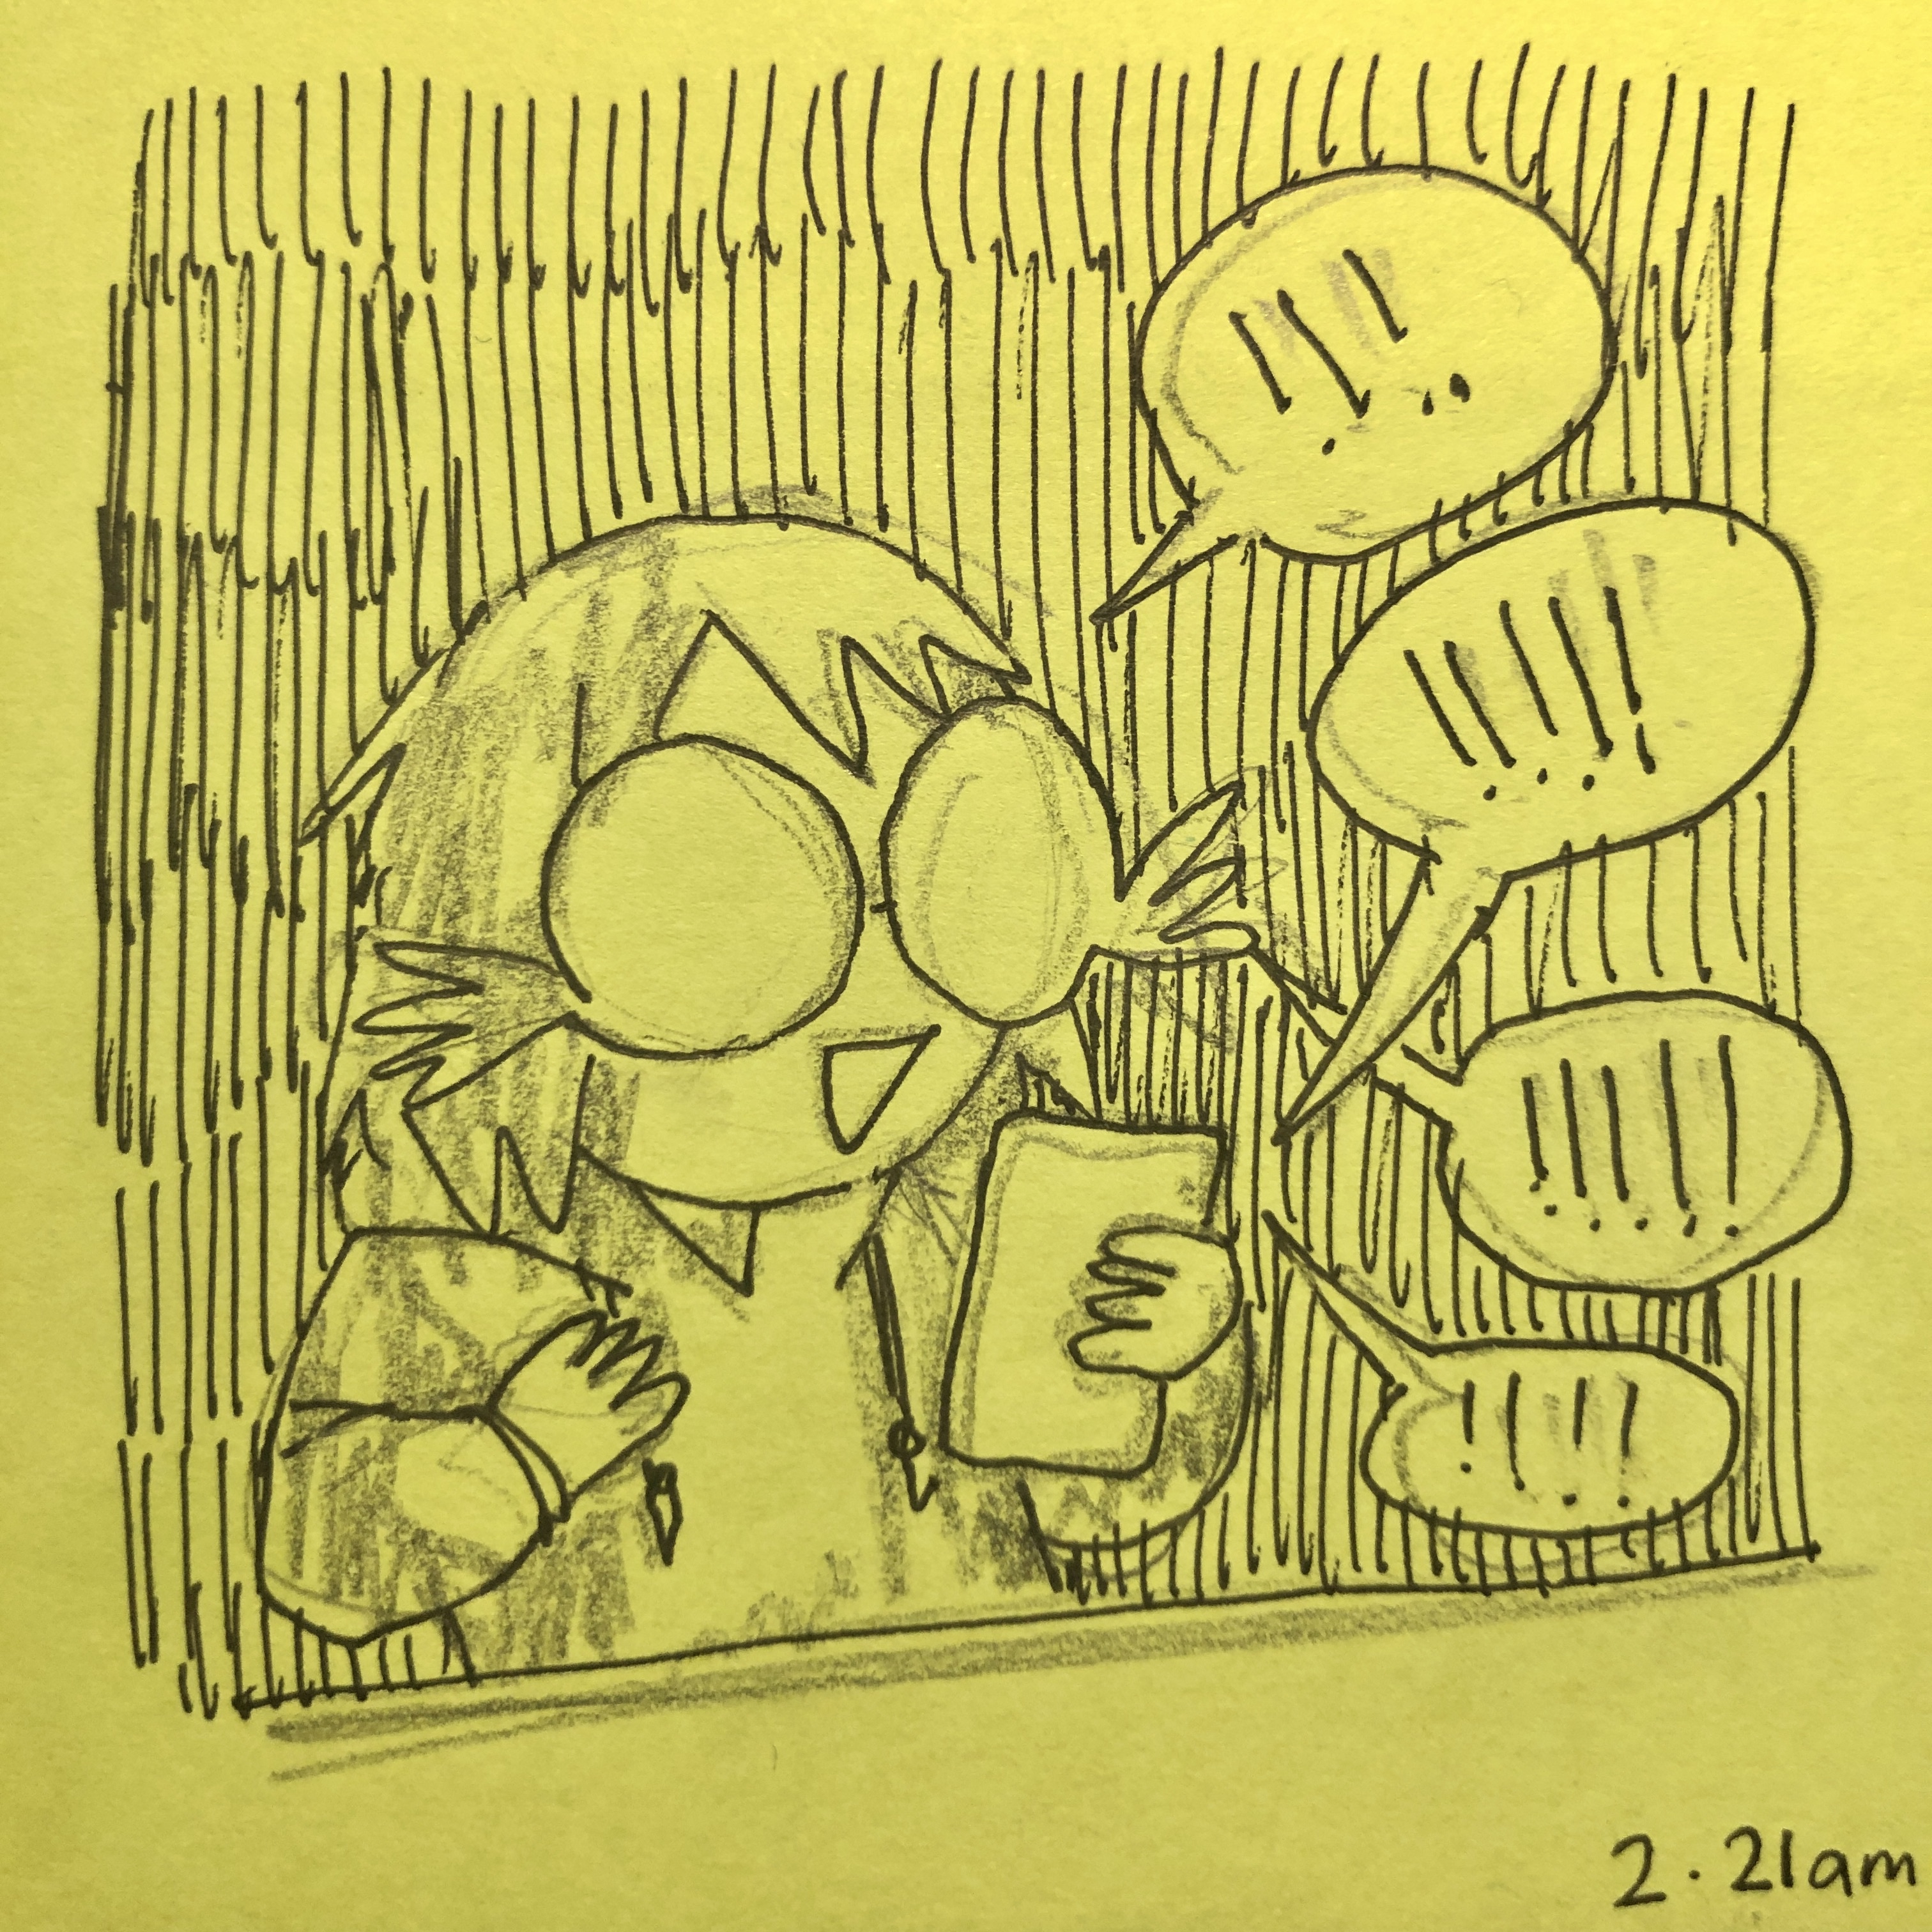 !!!
!!!!!
!!!!!
!!!!
2.21am